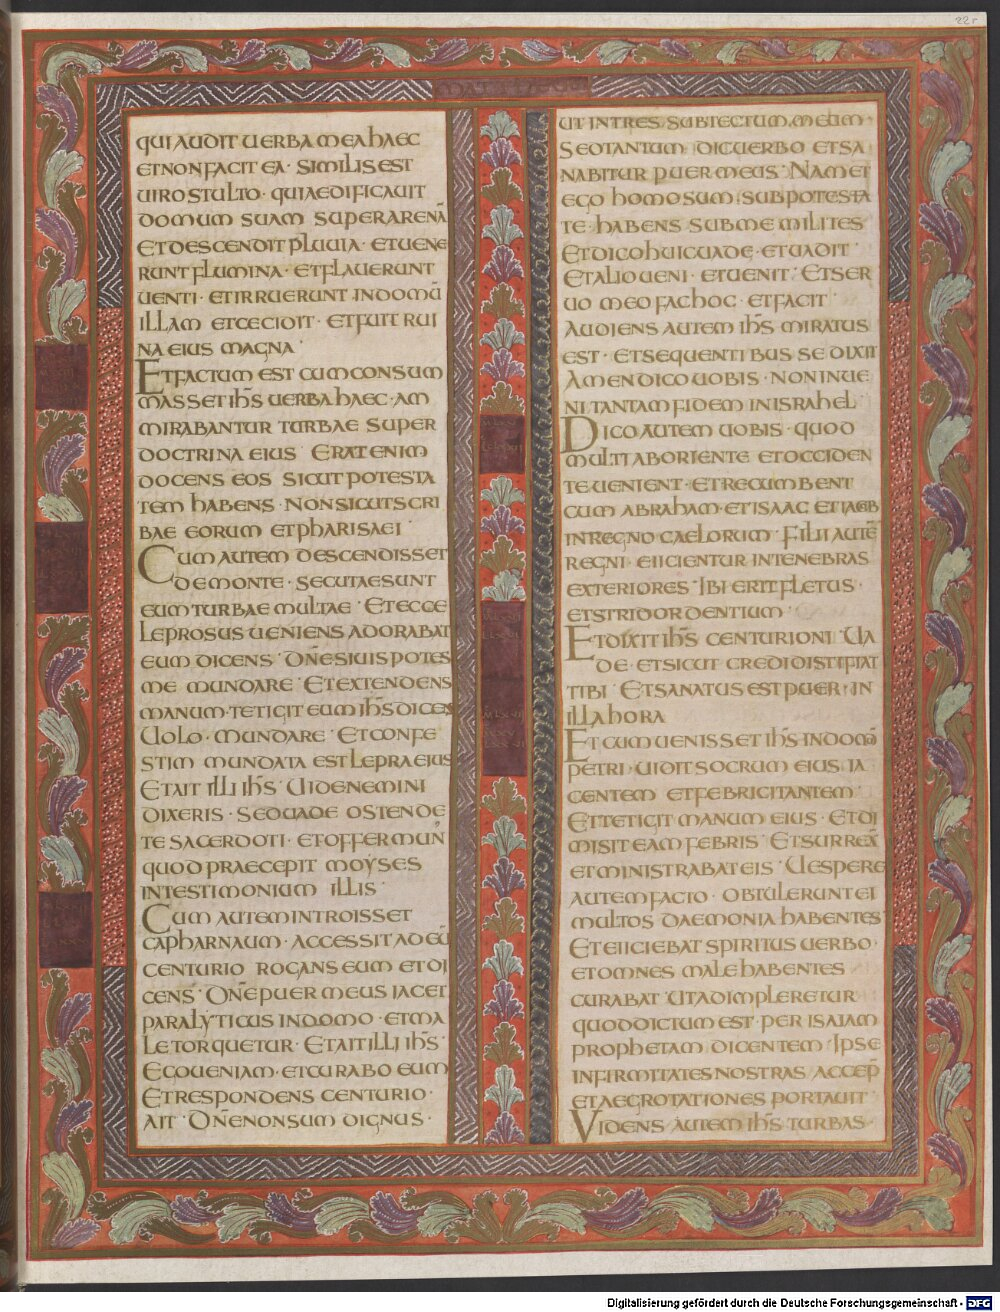 22r
QUI AUDIT UERBA MEA HAEC
ET NON FACIT EA · SIMILIS EST
UIRO STULTO · QUI AEDIFICAUIT
DOMUM SUAM SUPER ARENĀ
ET DESCENDIT PLUUIA · ET UENE
RUNT FLUMINA · ET FLAUERUNT
UENTI · ET IRRUERUNT IN DOMŪ
ILLAM ET CECIDIT · ET FUIT RUI
NA EIUS MAGNA ·
ET FACTUM EST CUM CONSUM
MASSET IHS UERBA HAEC · AM
MIRABANTUR TURBAE SUPER
DOCTRINA EIUS · ERAT ENIM
DOCENS EOS SICUT POTESTA
TEM HABENS · NON SICUT SCRI
BAE EORUM ET PHARISAEI ·
CUM AUTEM DESCENDISSET
DE MONTE · SECUTAE SUNT
EUM TURBAE MULTAE · ET ECCE
LEPROSUS UENIENS ADORABAT
EUM DICENS · DNE SI UIS POTES
ME MUNDARE · ET EXTENDENS
MANUM · TETIGIT EUM IHS DICES
UOLO · MUNDARE · ET CONFE
STIM MUNDATA EST LEPRA EIUS
ET AIT ILLI IHS · UIDE NEMINI
DIXERIS · SED UADE OSTENDE
TE SACERDOTI · ET OFFER MUN
QUOD PRAECEPIT MOYSES
IN TESTIMONIUM ILLIS ·
CUM AUTEM INTROISSET
CAPHARNAUM · ACCESSIT AD EŪ
CENTURIO ROGANS EUM ET DI
CENS · DNE PUER MEUS IACET
PARALYTICUS IN DOMO · ET MA
LE TORQUETUR · ET AIT ILLI IHS ·
EGO UENIAM · ET CURABO EUM
ET RESPONDENS CENTURIO ·
AIT · DNE NON SUM DIGNUS ·
UT INTRES SUB TECTUM MEUM
SED TANTUM DIC UERBO ET SA
NABITUR PUER MEUS · NAM ET
EGO HOMO SUM SUB POTESTA
TE · HABENS SUB ME MILITES
ET DICO HUIC UADE · ET UADIT
ET ALIO UENI · ET UENIT · ET SER
UO MEO FAC HOC · ET FACIT
AUDIENS AUTEM IHS MIRATUS
EST · ET SEQUENTIBUS SE DIXIT
AMEN DICO UOBIS · NON INUE
NI TANTAM FIDEM IN ISRAHEL
DICO AUTEM UOBIS · QUOD
MULTI AB ORIENTE ET OCCIDEN
TE UENIENT · ET RECUMBENT
CUM ABRAHAM · ET ISAAC ET IACOB
IN REGNO CAELORUM · FILII AUTĒ
REGNI · EIICIENTUR IN TENEBRAS
EXTERIORES · IBI ERIT FLETUS
ET STRIDOR DENTIUM ·
ET DIXIT IHS CENTURIONI · UA
DE · ET SICUT CREDIDISTI FIAT
TIBI · ET SANATUS EST PUER · IN
ILLA HORA
ET CUM UENISSET IHS IN DOMŪ
PETRI · UIDIT SOCRUM EIUS IA
CENTEM ET FEBRICITANTEM ·
ET TETIGIT MANUM EIUS · ET DI
MISIT EAM FEBRIS · ET SURREX̄
ET MINISTRABAT EIS · UESPERE
AUTEM FACTO · OBTULERUNT EI
MULTOS DAEMONIA HABENTES ·
ET EIICIEBAT SPIRITUS UERBO ·
ET OMNES MALE HABENTES
CURABAT · UT ADIMPLERETUR
QUOD DICTUM EST · PER ISAIAM
PROPHETAM DICENTEM · IPSE
INFIRMITATES NOSTRAS ACCEP̄
ET AEGROTATIONES PORTAUIT ·
VIDENS AUTEM IHS TURBAS ·
Digitalisierung gefördert durch die Deutsche Forschungsgemeinschaft - DFG